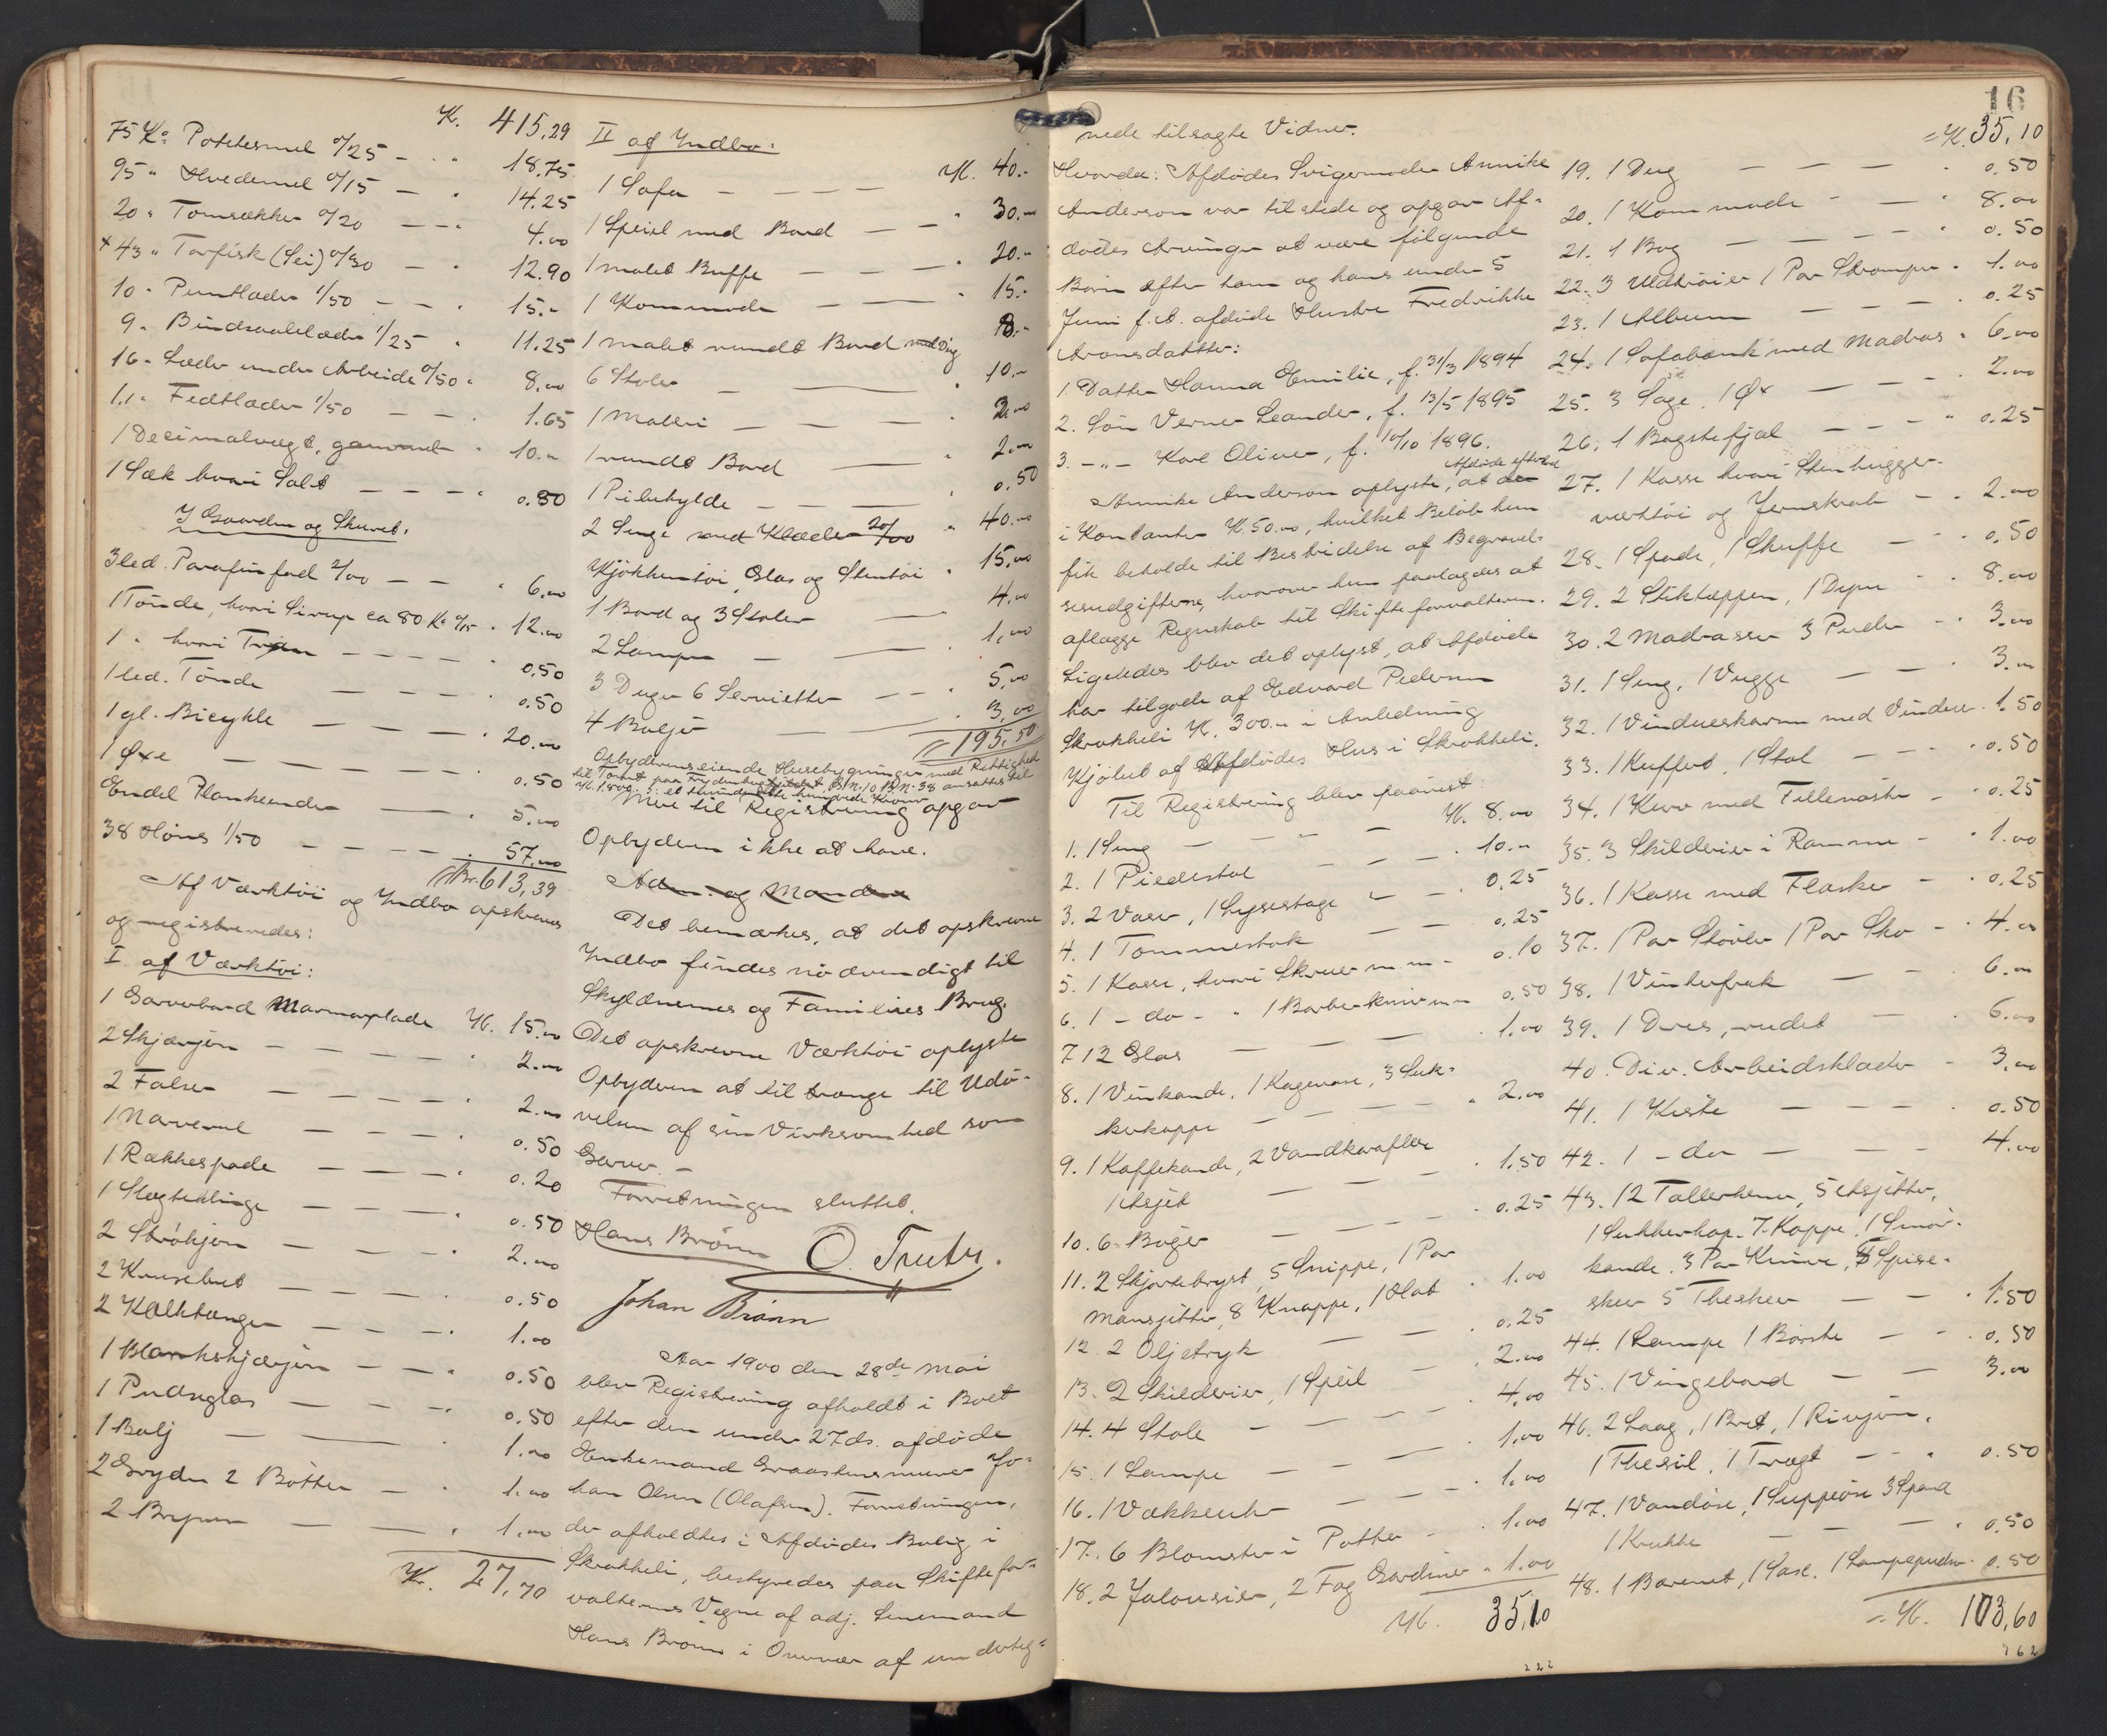 K. 415,29
75 Ko Potetesmel 0/25 - - " 18.75
95 " Hvedemel 0/15 - " 14.25
20 " Tomsækker 0/20 - - " 4.00
+ 43 " Torfisk (Sei) 0/30 - " 12.90
10 " Puntlæder 1/50 - - " 15.-
9 " Bindsaalelæder 1/25 " 11.25
16 " Læder under Arbeide 0/50 " 8.00
1,1 " Fedtlæder 1/50 - - " 1.65
1 Decimalvægt, gammel " 10.-
1 Sæk hvori Salt - - - " 0.80
I Gaarden og Skuret:
3 led. Parafinfad 2/00 - - " 6.00
1 Tönde, hvori Sirup ca 80 Ko 0/15 " 12.00
1 " hvori Tran - - - - " 0.50
1 led. Tönde - - - " 0.50
1 gl. Bicykle - - - " 20.00
1 Øxe - - - - " 0.50
Endel Plankeender - - " 5.00
38 Höns 1/50 - - - - " 57.00
Kr. 613,39
Af Værktöi og Indbo opskreves
og registreredes:
I. af Værktöi:
1 Garverbord Marmorplade K. 15.00
2 Skjærjern - - - - " 2.00
2 Falser - - - - " 2.00
1 Narveul - - - " 0.50
1 Rækkespade - - - " 0.20
1 Slagteklinge - - - " 0.50
2 Strökjern - - - " 2.00
2 Krusebret - - - " 0.50
2 Kalktænger - - - " 1.00
1 Blankskjærjern - - " 0.50
1 Pudsglas - - - " 0.50
1 Balj - - - " 1.00
2 Gryder 2 Bötter - " 1.00
2 Bryner - - " 1.00
K. 27,70
II af Indbo:
1 Sofa - - - - K. 40.-
1 Speil med Bord - - " 30.-
1 malet Buffe - - - " 20.-
1 Kommode - - " 15.-
1 malet rundt Bord med Dug 8.-
6 Stoler - - " 10.-
1 Maleri - - - " 2.00
1 rundt Bord - " 2.00
1 Pibehylde - - " 0.50
2 Senge med Klæder 20/00 " 40.00
Kjökkentöi, Glas og Stentöi " 15.00
1 Bord og 3 Stoler - 4.00
2 Lamper - - " 1,00
3 Duger 6 Servietter - - " 5.00
4 Baljer - - " 3,00
195,50
Opbyderens eiende Husebygninger med Rettighed
til Tomt paa Frydenlund G.N. 10 B.N. 38 ansattes til
K. 1,800.- et Tusinde otte hundrede Kroner
Mere til Registrering opgav
Opbyderen ikke at have.
Adm. og Mandens
Det bemærkes, at det opskrevne
Indbo findes nödvendigt til
Skyldnernes og Familiens Brug.
Det opskrevne Værktöi oplyste
Opbyderen at tiltrænge til Udö-
velsen af sin Virksomhed som
Garver. -
Forretningen sluttet.
Hans Brönn O.
Johan Brönn
Aar 1900 den 28de Mai
blev Registrering afholdt i Boet
efter den under 27 ds. afdöde
Enkemand Graastensmurer Jo-
han Olsen (Olafsen). Forretningen,
der afholdtes i Afdödes Bolig i
Skrokheli, bestyredes paa Skiftefor-
valterens Vegne af adj. Lensmand
Hans Brönn i Overvær af underteg-
16
nede tilsagte Vidner.
Hvorda: Afdödes Svigermoder Annike
Anderson var tilstede og opgav Af-
dödes Arvinger at være fölgende
Börn efter ham og hans under 5
Juni f. A. afdöde Hustru Fredrikke
Aronsdatter:
1. Datter Hanna Emilie, f. 31/3 1894
2. Sön Verner Leander, f. 13/5 1895
3. - " - Karl Oliver, f. 10/10 1896.
Annike Anderson oplyste, at der Afdöde efterlod
i Kontanter K. 50.00, hvilket Beløb hun
fik beholde til Bestridelse af Begravel-
sesudgifterne, hvorover hun paalagdes at
aflægge Regnskab til Skifteforvalteren.
Ligeledes blev det oplyst, at Afdöde
har tilgode af Edvard Pedersen
Skrokheli K. 300.- i Anledning
Kjöbet af Afdödes Hus i Skrokheli.
Til Registrering blev paavist:
1. 1 Seng - - - K. 8.00
2. 1 Piedestal - - - " 10.-
3. 2 Vaser, 1 Lysestage - - " 0,25
4. 1 Tommestok - - 0,25
5. 1 Kasse, hvori Skruer m.m. - 0,10
6. 1 - do - " 1 Barberkniv m.m 0,50
7. 12 Glas - - - " 1.00
8. 1 Vinkande, 1 Kagevase, 3 Suk-
kerkopper - - - - " 2.00
9. 1 Kaffekande, 2 Vandkarafler
1 Asjet - - - " 1.50
10. 6 Böger - - - " 0.25
11. 2 Skjortebryst, 5 Snippe, 1 Par
Mansjetter, 8 Knappe, 1 Hat " 1.00
12. 2 Oljetryk - - " 0.25
13. 2 Skilderier, 1 Speil - " 2.00
14. 4 Stole - - - " 4,00
15. 1 Lampe - - - " 1,00
16. 1 Vækkeuhr - - " 1,00
17. 6 Blomster i Potter - " 1.00
18. 2 Jalousier, 2 Fag Gardiner " 1.00
K. 35,10
222
= K. 35,10
19. 1 Dug - - - " 0.50
20. 1 Kommode - - " 8.00
21. 1 Bog - - - - " 0.50
22. 3 Uldtröier 1 Par Strömper " 1.00
23. 1 Album - - - " 0.25
24. 1 Sofabænk med Madras " 6.00
25. 3 Sage, 1 Øx - - " 2.00
26. 1 Bagstefjæl - - - " 0.25
27. 1 Kasse hvori Stenhugger-
værktöi og Jernskrab - " 2.00
28. 1 Spade, 1 Skuffe - - " 0.50
29. 2 Stiktæppen, 1 Dyne - " 8.00
30. 2 Madrasser 3 Puder - " 3.00
31. 1 Seng, 1 Vugge - - " 3.00
32. 1 Vindueskarm med Vinduer " 1.50
33. 1 Kuffert, 1 Stol - - " 0.50
34. 1 Kurv med Fillenöste - " 0.25
35. 3 Skilderier i Ramme - " 1.00
36. 1 Kasse med Flasker - " 0.25
37. 1 Par Stövler 1 Par Sko - " 4.00
38. 1 Vinterfrak - - " 6.00
39. 1 Dres, rudet - " 6.00
40. Div. Arbeidsklæder - 3,00
41. 1 Kiste - - - " 0.50
42. 1 - do - - - 4.00
43. 12 Tallerkener, 5 Asjetter,
1 Sukkerkop. 7 Koppe. 1 Smör-
kande. 3 Par Knive, 8 Spise-
skeer 5 Theskeer - - " 1.50
44. 1 Lampe 1 Börste - - " 0.50
45. 1 Vingebord - - 3.00
46. 2 Laag, 1 Bret, 1 Rivjern.
1 Thesil, 1 Tragt - - " 0.50
47. 1 Vandöse, 1 Suppeöse 3 Spand
1 Krukke - - - " 0.50
48. 1 Barometer, 1 Sax. 1 Lampepudser " 0.50
= K. 103,60
762